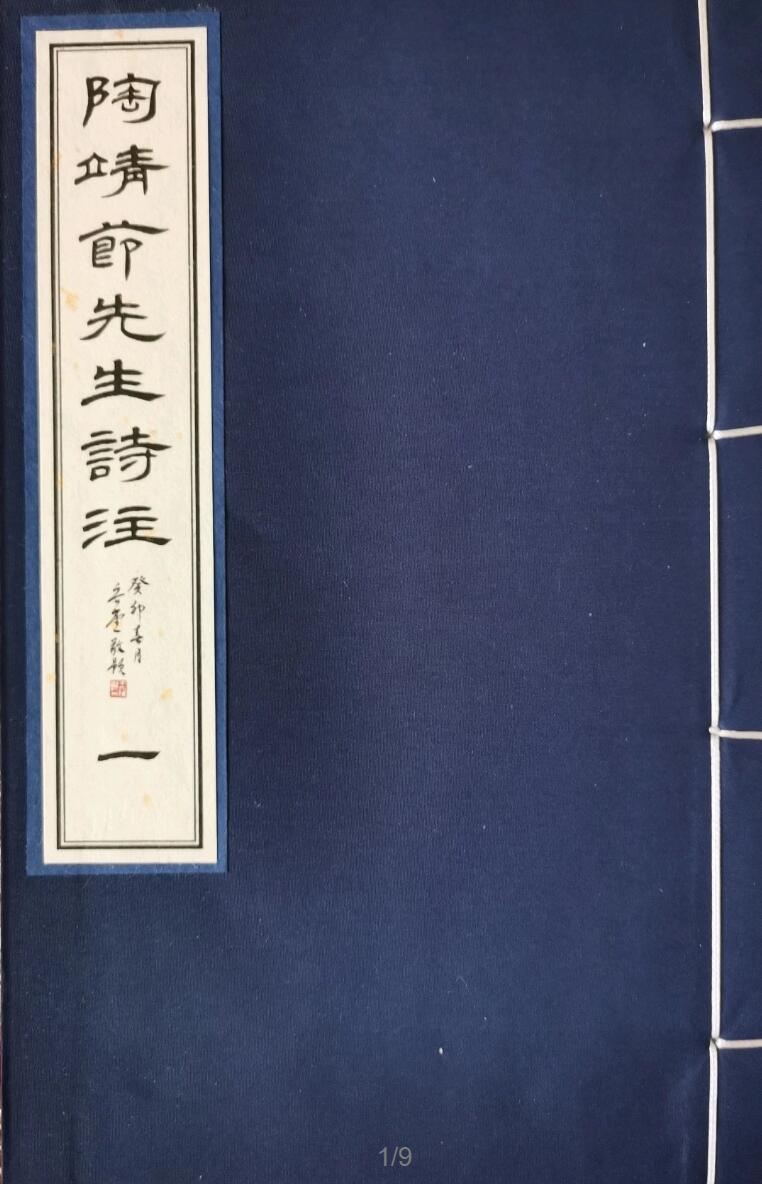 陶靖節先生詩注
癸卯春月
敬題
一
1/9